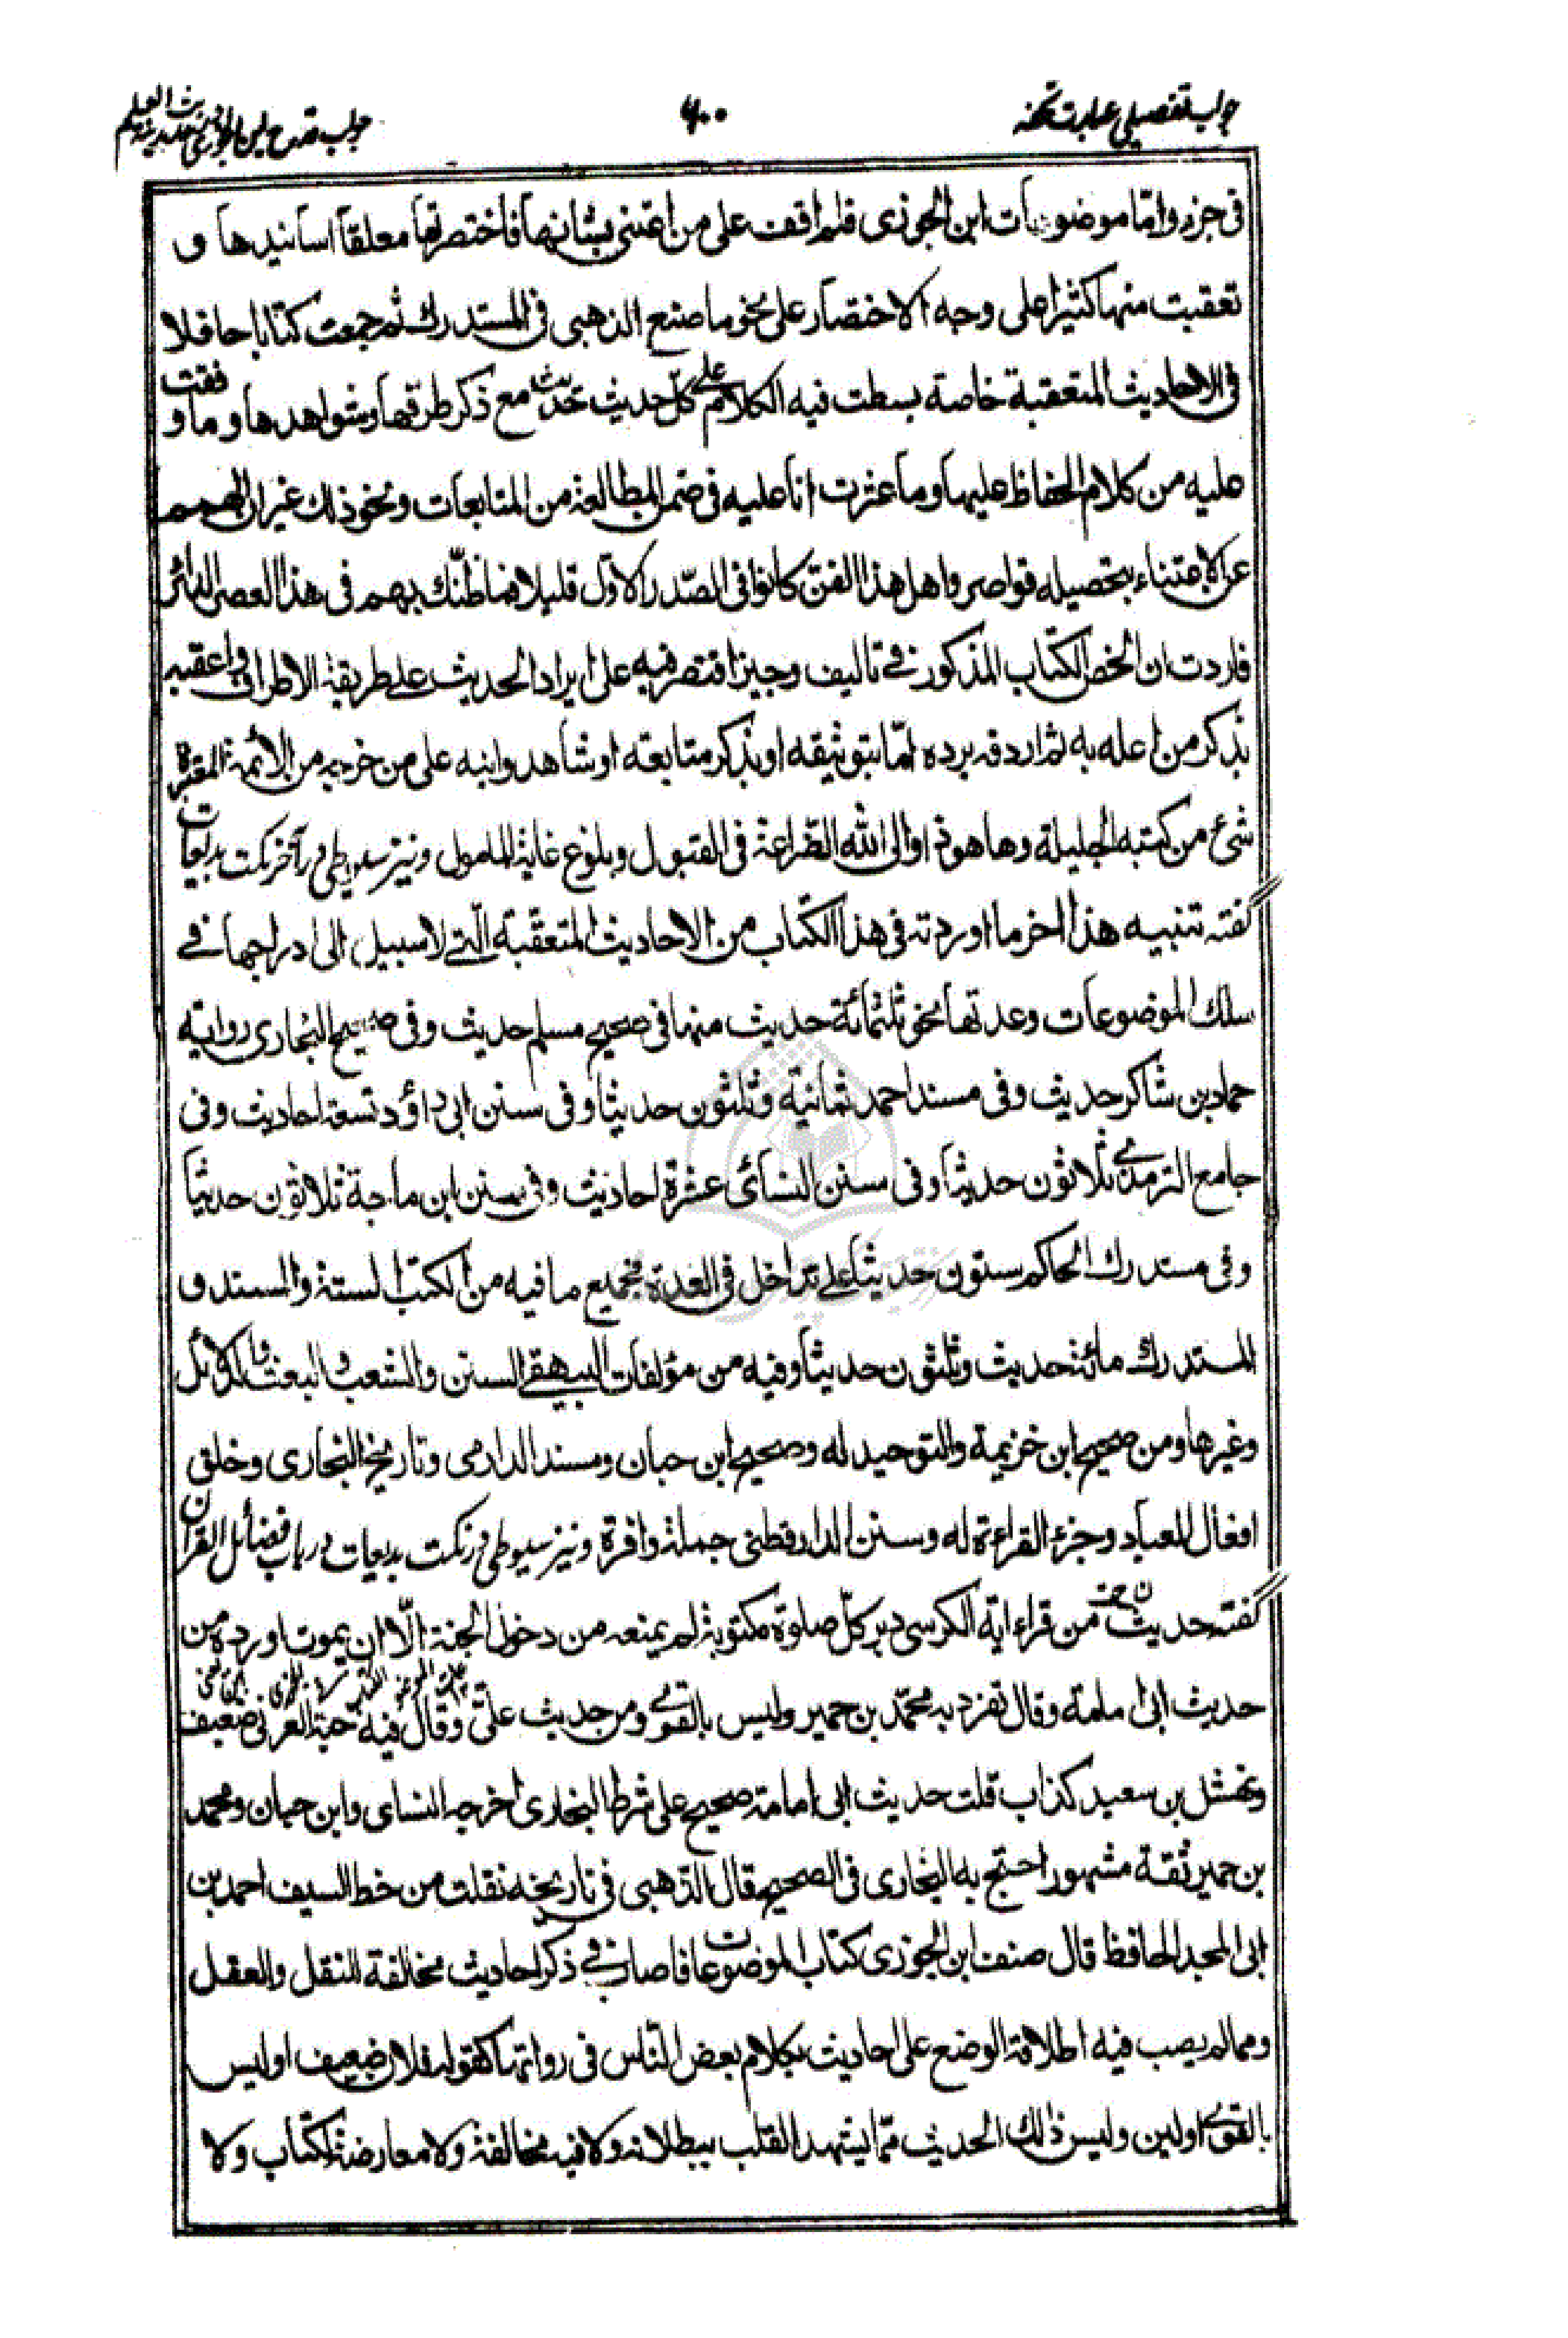 جواب تفصیلی عبارت تحفه
۶۰۰
جواب قدح ابن الجوزی حدیث مدینة العلم
فی جزء و امّا موضوعات ابن الجوزی فلم اقف علی من اعتنی بشانها فاختصرتها معلقاً اسانیدها و
تعقبت منها کثیرا علی وجه الاختصار علی نحو ما صنع الذهبی فی المستدرك ثم جمعت کتابا حافلا
فی الاحادیث المتعقبة خاصة بسطت فیه الکلام علی کلّ حدیث حدیث مع ذکر طرقها و شواهدها و ما وقفت
علیه من کلام الحفاظ علیها و ما عثرت انا علیه فی ضمن المطالعة من المتابعات و نحو ذلك غیر ان الهمم
عن الاعتناء بتحصیله قواصر و اهل هذا الفنّ کانوا فی الصّدر الاوّل قلیلا فما ظنّك بهم فی هذا العصر الداثر
فاردت ان الخص الکتاب المذکور فی تالیف وجیز اقتصر فیه علی ایراد الحدیث علی طریقة الاطراف و اعقبه
بذکر من اعله به ثم اردفه برده امّا بتوثیقه او بذکر متابعته او شاهد و انبه علی من خرجه من الائمة المعتبرة
شیء من کتبه الجلیلة و ها هو ذا و الی الله الضّراعة فی القبول و بلوغ غایة المامول و نیز سیوطی در آخر نکت بدیعات
گفته تنبیه هذا اخر ما اوردته فی هذا الکتاب من الاحادیث المتعقّبة الّتی لا سبیل الی ادراجها فی
سلك الموضوعات و عدتها نحو ثلثمائة حدیث منها فی صحیح مسلم حدیث و فی صحیح البخاری روایة
حماد بن شاکر حدیث و فی مسند احمد ثمانیة و ثلثون حدیثا و فی سنن ابی داؤد تسعة احادیث و فی
جامع الترمذی ثلاثون حدیثاً و فی سنن النسائی عشرة احادیث و فی سنن ابن ماجة ثلاثون حدیثاً
و فی مستدرك الحاکم ستون حدیثا علی تداخل فی العدة فجمیع ما فیه من الکتب الستة و المسند و
المستدرك مائة حدیث و ثلثون حدیثاً و فیه من مؤلفات البیهقی السنن و الشعب و البعث و الدلائل
و غیرها و من صحیح ابن خزیمة و التوحید له و صحیح ابن حبان و مسند الدارمی و تاریخ البخاری و خلق
افعال العباد و جزء القراءة له و سنن الدارقطنی جملة وافرة و نیز سیوطی در نکت بدیعات در باب فضائل القرآن
گفته حدیث من قرا ءایة الکرسی دبر کلّ صلوة مکتوبة لم یمنعه من دخول الجنة الّا ان یموت اورده من
حدیث ابی امامة و قال تفرد به محمّد بن حمیر و لیس بالقوی و من حدیث علیّ و قال فیه حبة العرنی ضعیف
و نهشل بن سعید کذاب قلت حدیث ابی امامة صحیح علی شرط البخاری اخرجه النسای و ابن حبان و محمد
بن حمیر ثقة مشهور احتج به البخاری فی الصحیح قال الذهبی فی تاریخه نقلت من خط السیف احمد بن
ابی المجد الحافظ قال صنف ابن الجوزی کتاب الموضوعات فاصاب فی ذکر احادیث مخالفة للنقل و العقل
و مما لم یصب فیه اطلاقة الوضع علی احادیث بکلام بعض النّاس فی رواتها کقوله فلان ضعیف او لیس
بالقوی او لین و لیس ذلك الحدیث ممّا یشهد القلب ببطلانه و لا فیه مخالفة و لا معارضة لکتاب و لا